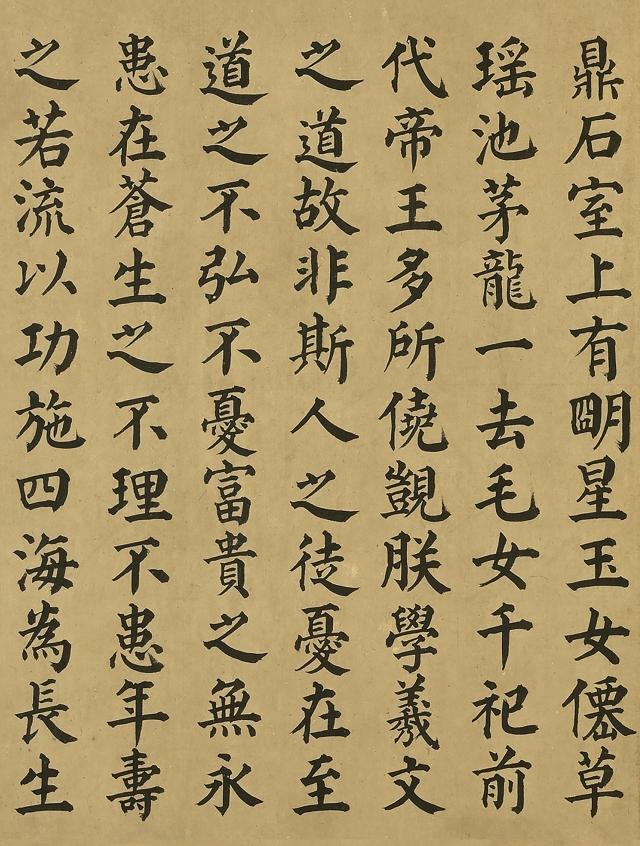 鼎石室上有明星玉女僊草
瑶池茅龍一去毛女千祀前
代帝王多所僥覬朕學羲文
之道故非斯人之徒憂在至
道之不弘不憂富貴之無永
患在蒼生之不理不患年壽
之若流以功施四海為長生